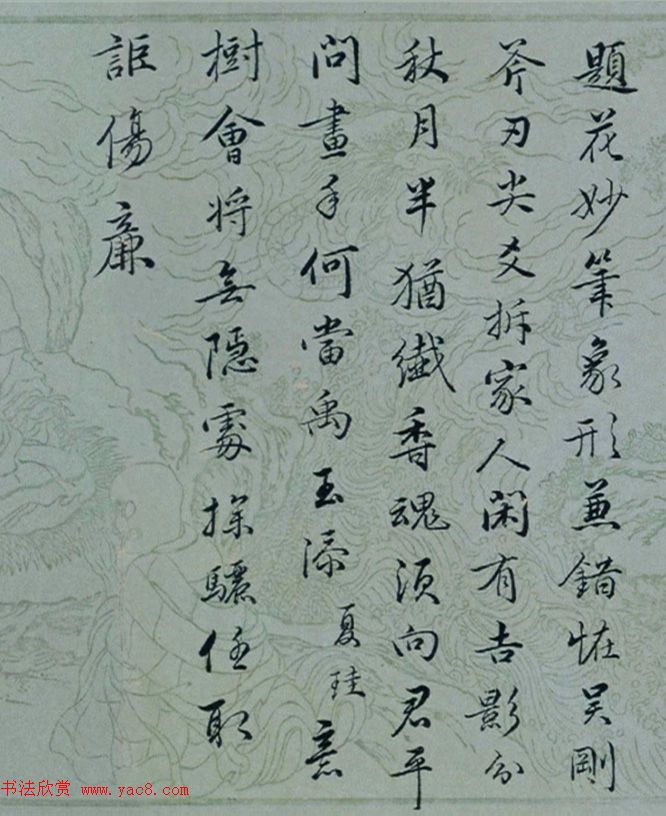 題花妙筆象形兼錯怪吳剛
斧刃尖爻拆家人閑有吉影分
秋月半猶纖香魂須向君平
問畫手何當禹玉添夏珪意
樹會將無隱處探驪任取
詎傷廉
书法欣赏 www.yac8.com